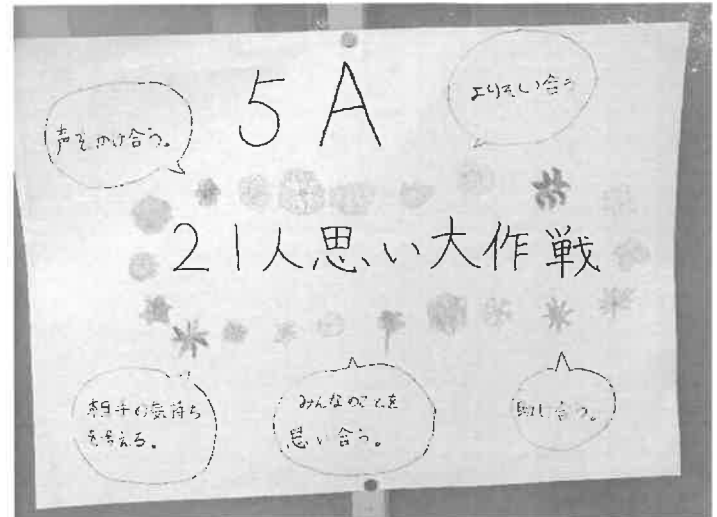 5A
声をかけ合う。
よりそい合う
21人思い大作戦
相手の気持ち
を考える。
みんなのことを
思い合う。
助け合う。